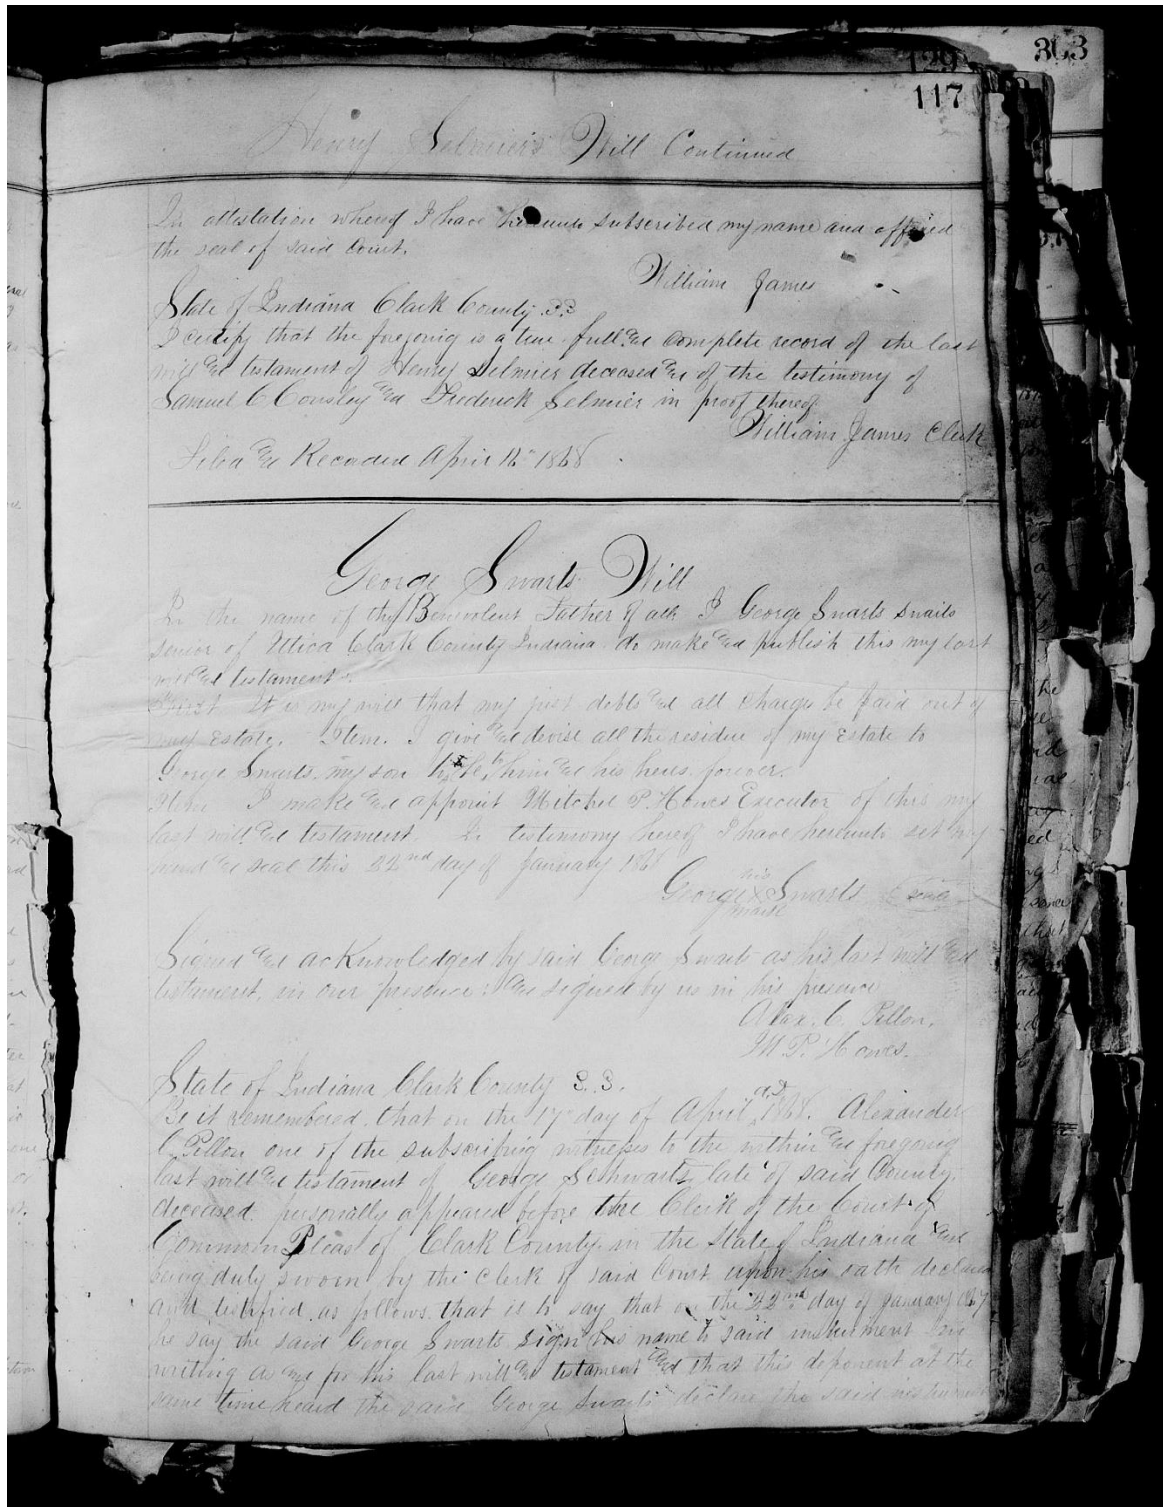 303
129
117
Henry Selmier's Will Continued
In attestation whereof I have hereunto subscribed my name and affixed
the seal of said Court.
William James
State of Indiana Clark County S.S
I certify that the foregoing is a true full & complete record of the last
will & testament of Henry Selmier deceased & of the testimony of
Samuel C Consley & Frederick Selmier in proof thereof
William James Clerk
Filed & Recorded April 16th 1868
George Swarts Will
In the name of the Benevolent Father of all I George Swarts Swarts
senior of Utica Clark County Indiana do make & publish this my last
will & testament.
First It is my will that my just debts & all Charges be paid out of
my Estate. Item. I give & devise all the residue of my Estate to
George Swarts my son to him & his heirs forever.
Item I make & appoint Mitchel P. Howes Executor of this my
last will & testament In testimony hereof I have hereunto set my
hand & seal this 22nd day of January 186
his
George X Swarts seal
mark
Signed & acknowledged by said George Swarts as his last will &
testament, in our presence & signed by us in his presence
Alex. C. Pellon.
M. P. Howes.
State of Indiana Clark County S.S.
Be it remembered, that on the 17th day of April, AD 1868. Alexander
C Pellon one of the subscribing witnesses to the within & foregoing
last will & testament of George Schwartz late of said County.
deceased. personally appeared before the Clerk of the Court of
Common Pleas of Clark County in the State of Indiana &
being duly sworn by the clerk of said Court upon his oath declared
and testified as follows, that is to say that on the 22nd day of January 1867
he say the said George Swarts sign his name to said instrument in
writing as & for his last will & testament & that this deponent at the
same time heard the said George Swarts declare the said instrument